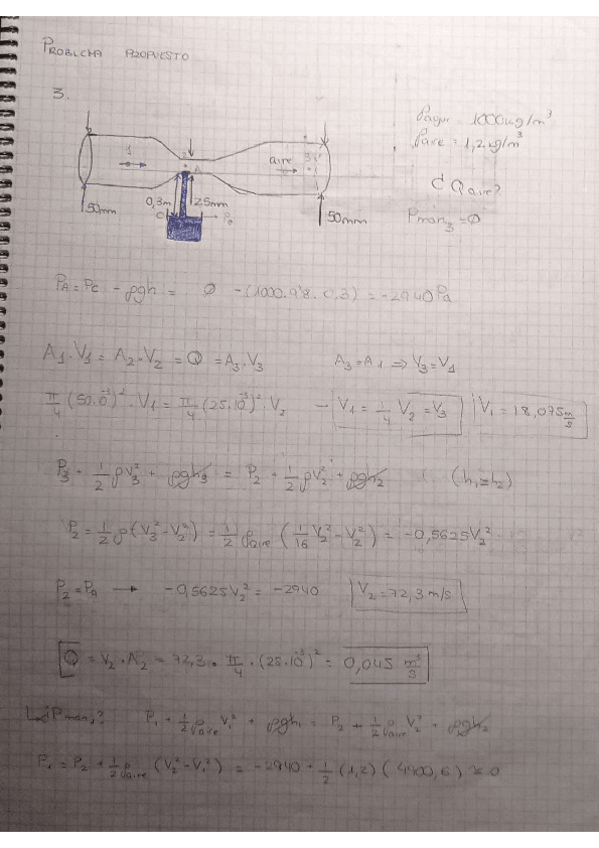 PROBLEMA PROPUESTO
3.
ρagua = 1000 kg/m³
ρaire = 1,2 kg/m³
1 2 A aire 3
¿Qaire?
0,3m 25mm C P₀
50mm 50mm
Pman₃ = Ø
PA = PC - ρgh = Ø - (1000·9'8·0,3) = -2940 Pa
A₁·V₁ = A₂·V₂ = Q = A₃·V₃ A₃ = A₁ ⇒ V₃ = V₁
π/4 (50·10⁻³)²·V₁ = π/4 (25·10⁻³)²·V₂ → V₁ = 1/4 V₂ = V₃ V₁ = 18,075 m/s
P₃ + 1/2 ρV₃² + ρgh₃ = P₂ + 1/2 ρV₂² + ρgh₂ (h₁=h₂)
P₂ = 1/2 ρ(V₃²-V₂²) = 1/2 ρaire (1/16 V₂² - V₂²) = -0,5625V₂²
P₂ = PA → -0,5625V₂² = -2940 V₂ = 72,3 m/s
Q = V₂·A₂ = 72,3·π/4·(25·10⁻³)² = 0,045 m³/s
¿Pman₁? P₁ + 1/2 ρaire V₁² + ρgh₁ = P₂ + 1/2 ρaire V₂² + ρgh₂
P₁ = P₂ + 1/2 ρaire (V₂²-V₁²) = -2940 + 1/2 (1,2)(4900,6) ≈ 0